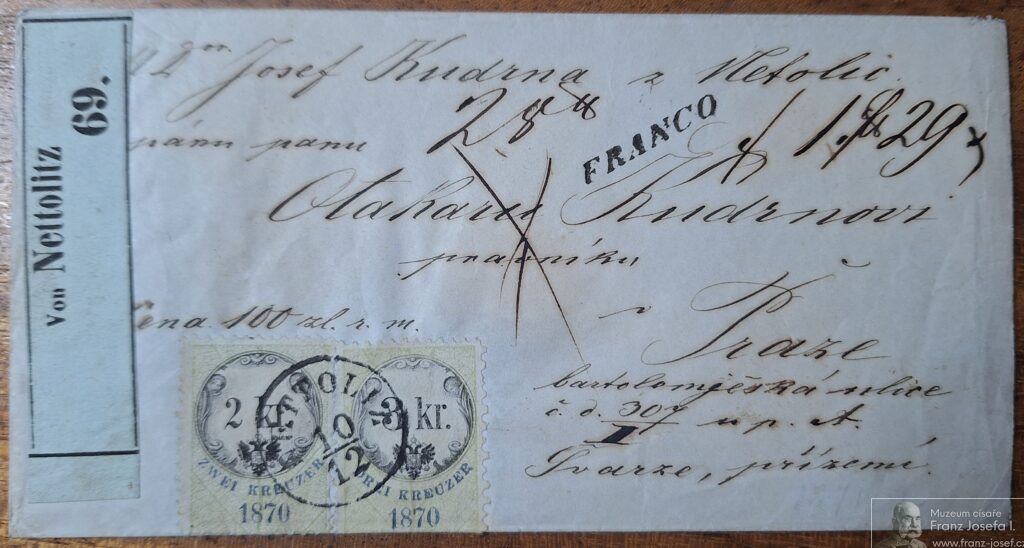 Von Nettolitz
69.
Josef Kudrna z Netolic
pánu panu
28
FRANCO
1. 29
Otakaru Kudrnovi
právníku
v
Praze
Cena 100 zl. r. m.
bartolomějská ulice
č. d. 307 u p. A.
I
Švarze, přízemí.
2 kr.
ZWEI KREUZER
1870
3 kr.
DREI KREUZER
1870
NETTOLITZ
10
12
Muzeum císaře
Franz Josefa I.
www.franz-josef.cz